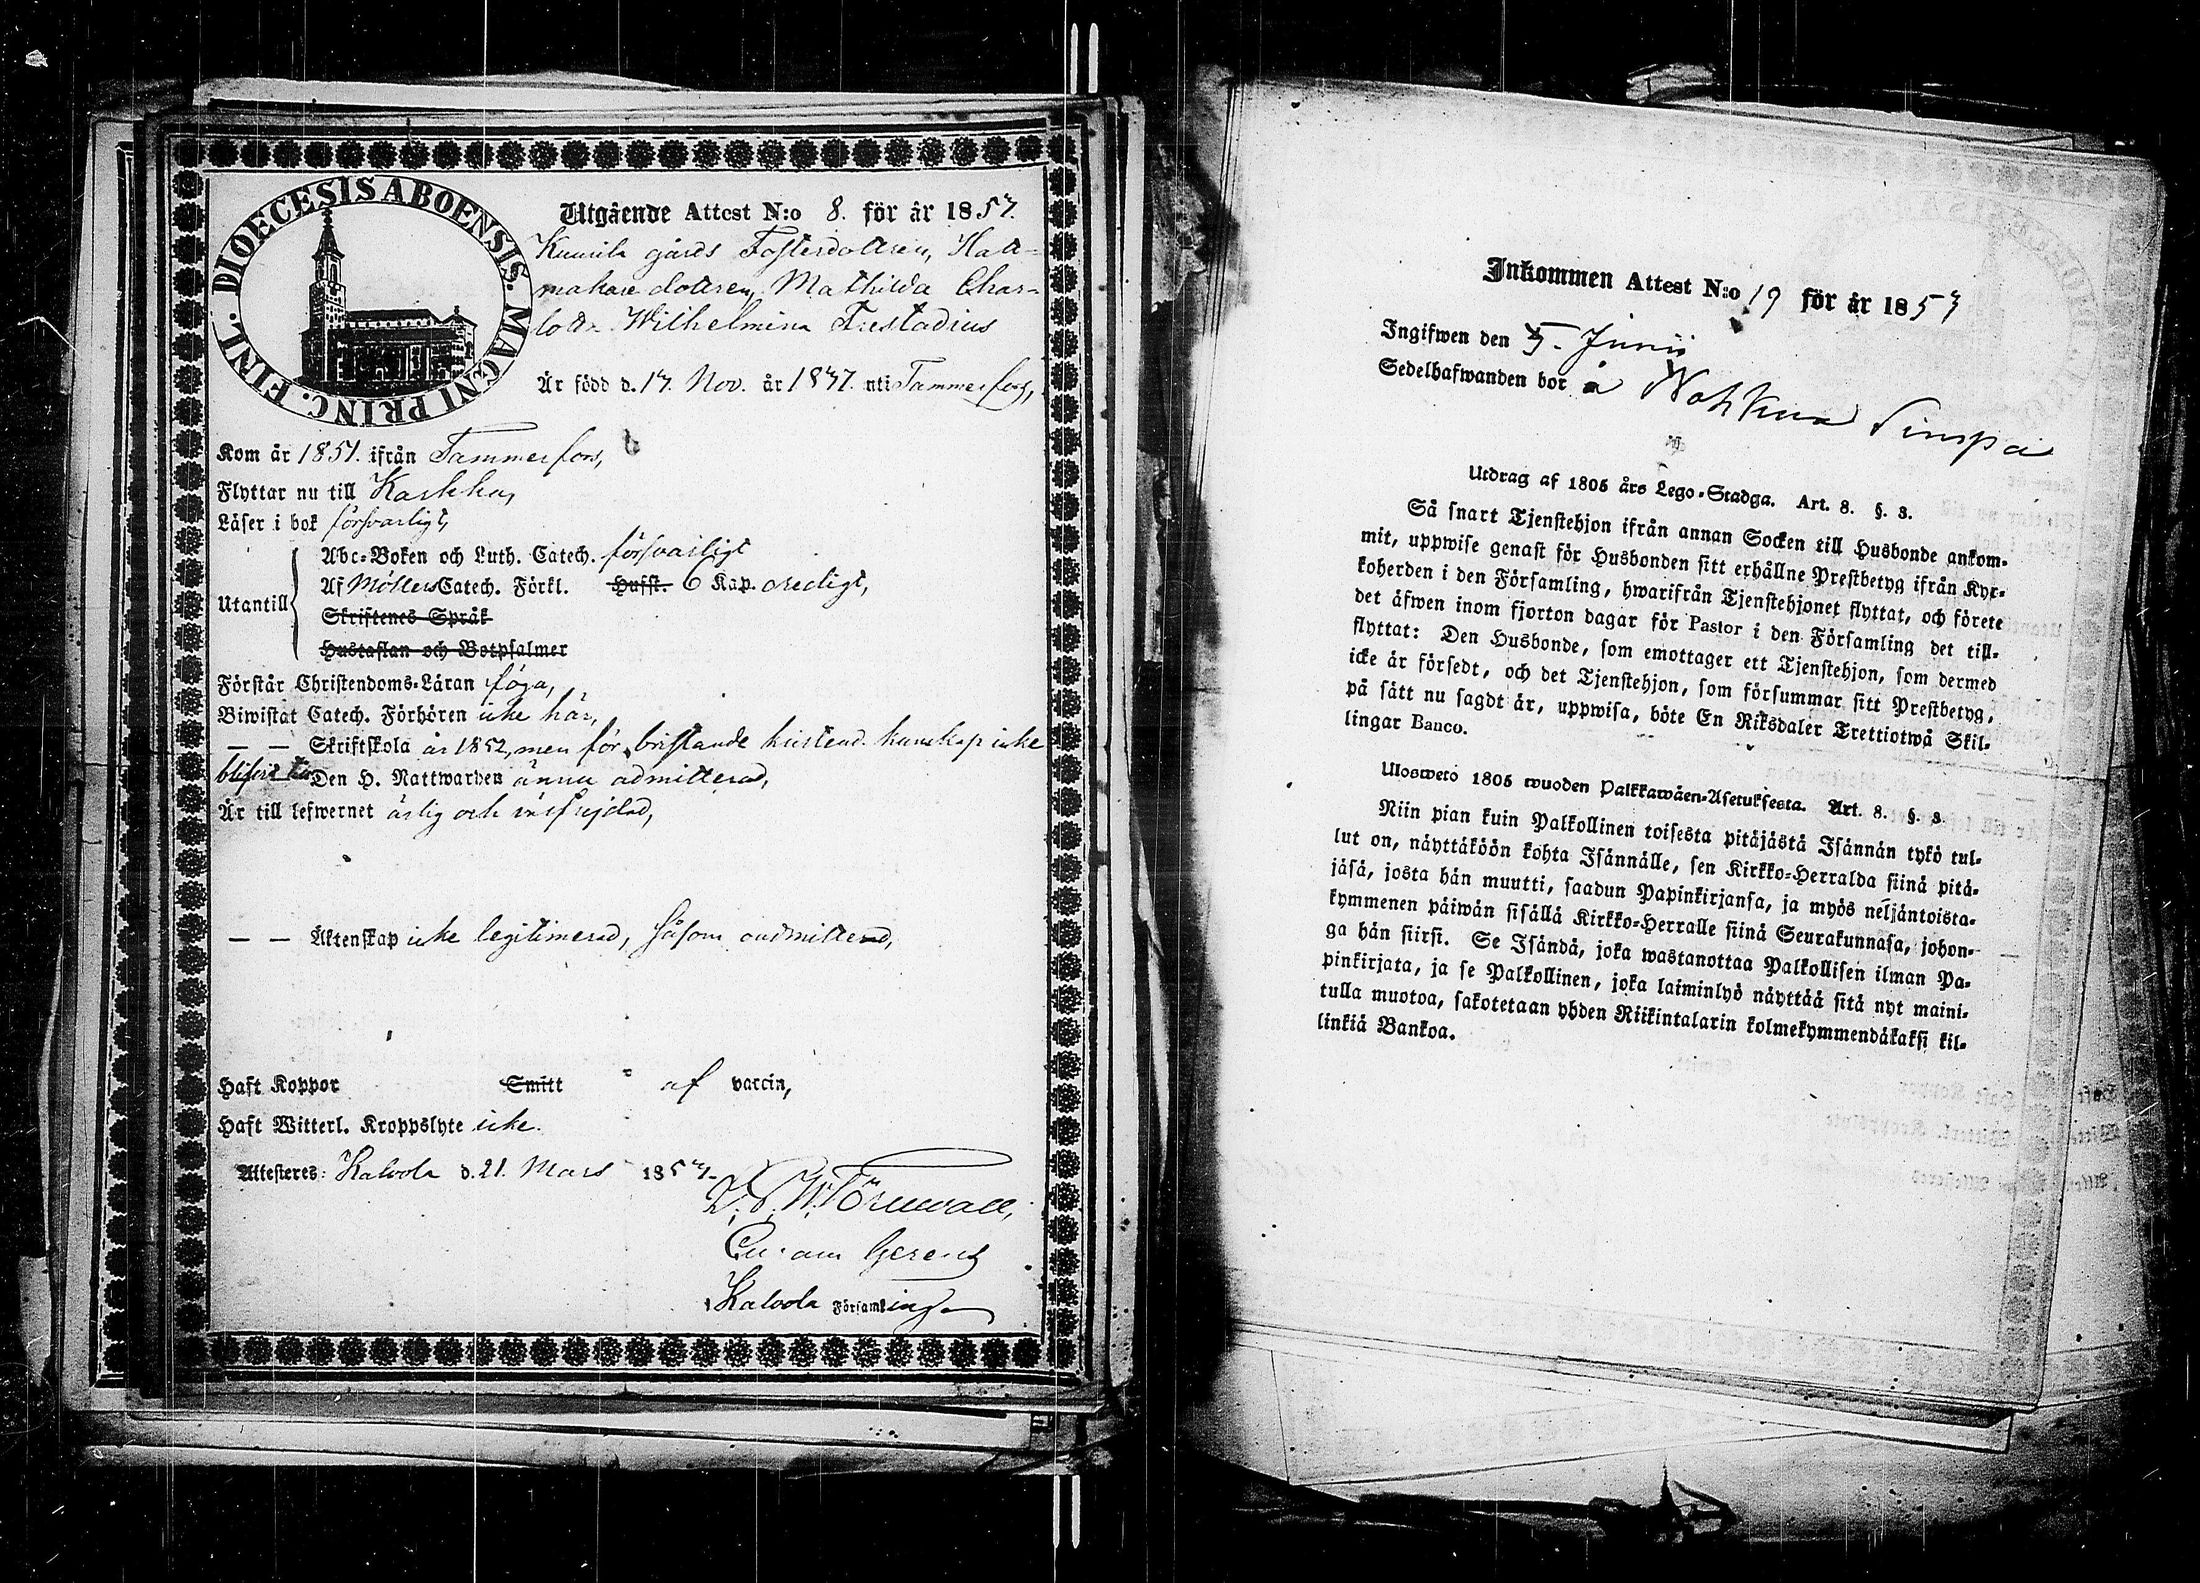 DIOECESIS ABOENSIS. MAGNI PRINC. FINL.
Utgående Attest N:o 8. för år 1853.
Kuurila gårds Fosterdottren, Hatt-
makare dottren, Mathilda Char-
lotta Wilhelmina Frestadius
Är född d. 17. Nov. år 1837. uti Tammerfors,
Kom år 1851. ifrån Tammerfors,
Flyttar nu till Karkku,
Läser i bok försvarligt,
Utantill
Abc-Boken och Luth. Catech. försvarligt
Af Möllers Catech. Förkl. Husst. 6 Kap. oredigt,
Skriftenes Språk
Hustaflan och Botpsalmer
Förstår Christendoms-Läran föga,
Biwistat Catech. Förhören icke här,
— — Skriftskola år 1852, men för bristande kristend. kunskap icke
blifvit till Den H. Nattwarden ännu admitterad,
Är till lefwernet ärlig och väl frejdad,
— — Äktenskap icke legitimerad, såsom oadmitterad,
Haft Koppor Smitt af vaccin,
Haft Witterl. Kroppslyte icke.
Attesteres: Kalvola d. 21. Mars 1853.
Törnwall,
Curam Gerens
Kalvola Församling
Inkommen Attest N:o 19 för år 1853
Ingifwen den 5. Junii
Sedelhafwanden bor å Nohkua Simpa
Utdrag af 1805 års Lego-Stadga. Art. 8. §. 3.
Så snart Tjenstehjon ifrån annan Socken till Husbonde ankom-
mit, uppwise genast för Husbonden sitt erhållne Prestbetyg ifrån Kyr-
koherden i den Församling, hwarifrån Tjenstehjonet flyttat, och förete
det äfwen inom fjorton dagar för Pastor i den Församling det till-
flyttat: Den Husbonde, som emottager ett Tjenstehjon, som dermed
icke är försedt, och det Tjenstehjon, som försummar sitt Prestbetyg,
på sätt nu sagdt är, uppwisa, böte En Riksdaler Trettiotwå Skil-
lingar Banco.
Ulosweto 1805 wuoden Palkkawäen-Asetuksesta. Art. 8. §. 3.
Niin pian kuin Palkollinen toisesta pitäjästä Isännän tykö tul-
lut on, näyttäköön kohta Isännälle, sen Kirkko-Herralda siinä pitä-
jäsä, josta hän muutti, saadun Papinkirjansa, ja myös neljäntoista-
kymmenen päiwän sisällä Kirkko-Herralle siinä Seurakunnasa, johon-
ga hän siirsi. Se Isändä, joka wastanottaa Palkollisen ilman Pa-
pinkirjata, ja se Palkollinen, joka laiminlyö näyttää sitä nyt maini-
tulla muotoa, sakotetaan yhden Riikintalarin kolmekymmendäkaksi kil-
linkiä Bankoa.